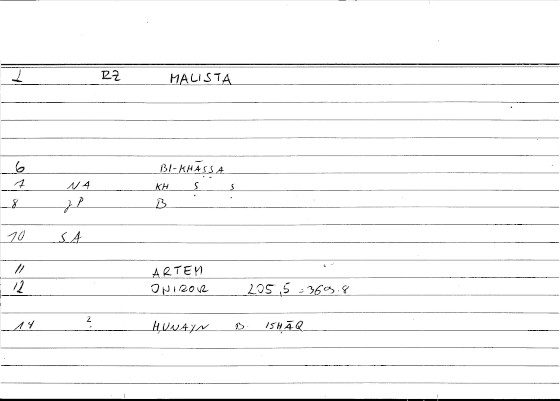 1 RZ MALISTA
6 BI-KHĀṢṢA
7 NA KH Ṣ Ṣ
8 JP B
10 SA
11 ARTEM
12 ONIROR 205,5 = 3609.8
14 ? ḤUNAYN B. ISḤĀQ